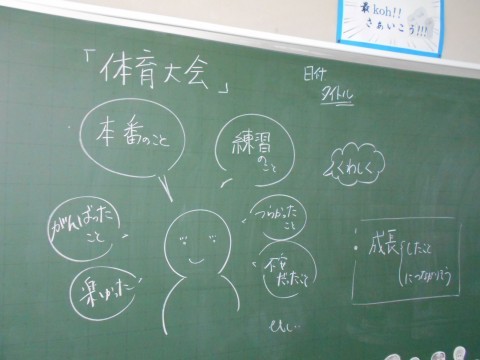 最koh!!
さぁいこう!!!
「体育大会」
日付
タイトル
本番のこと
練習
のこと
くわしく
がんばった
こと
つらかった
こと
楽しかった
不安
だったこと
成長したこと
につながりそう